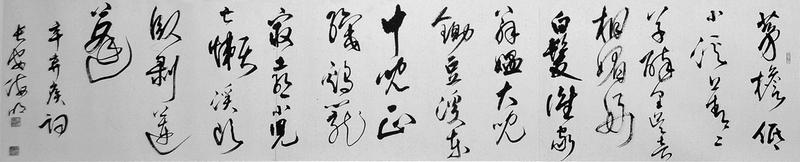 茅檐低
小溪上青々
草醉里吴音
相媚好
白髮谁家
翁媪大儿
锄豆溪东
中儿正
织鸡笼
最喜小儿
亡懒溪头
卧剥莲
蓬
辛弃疾词